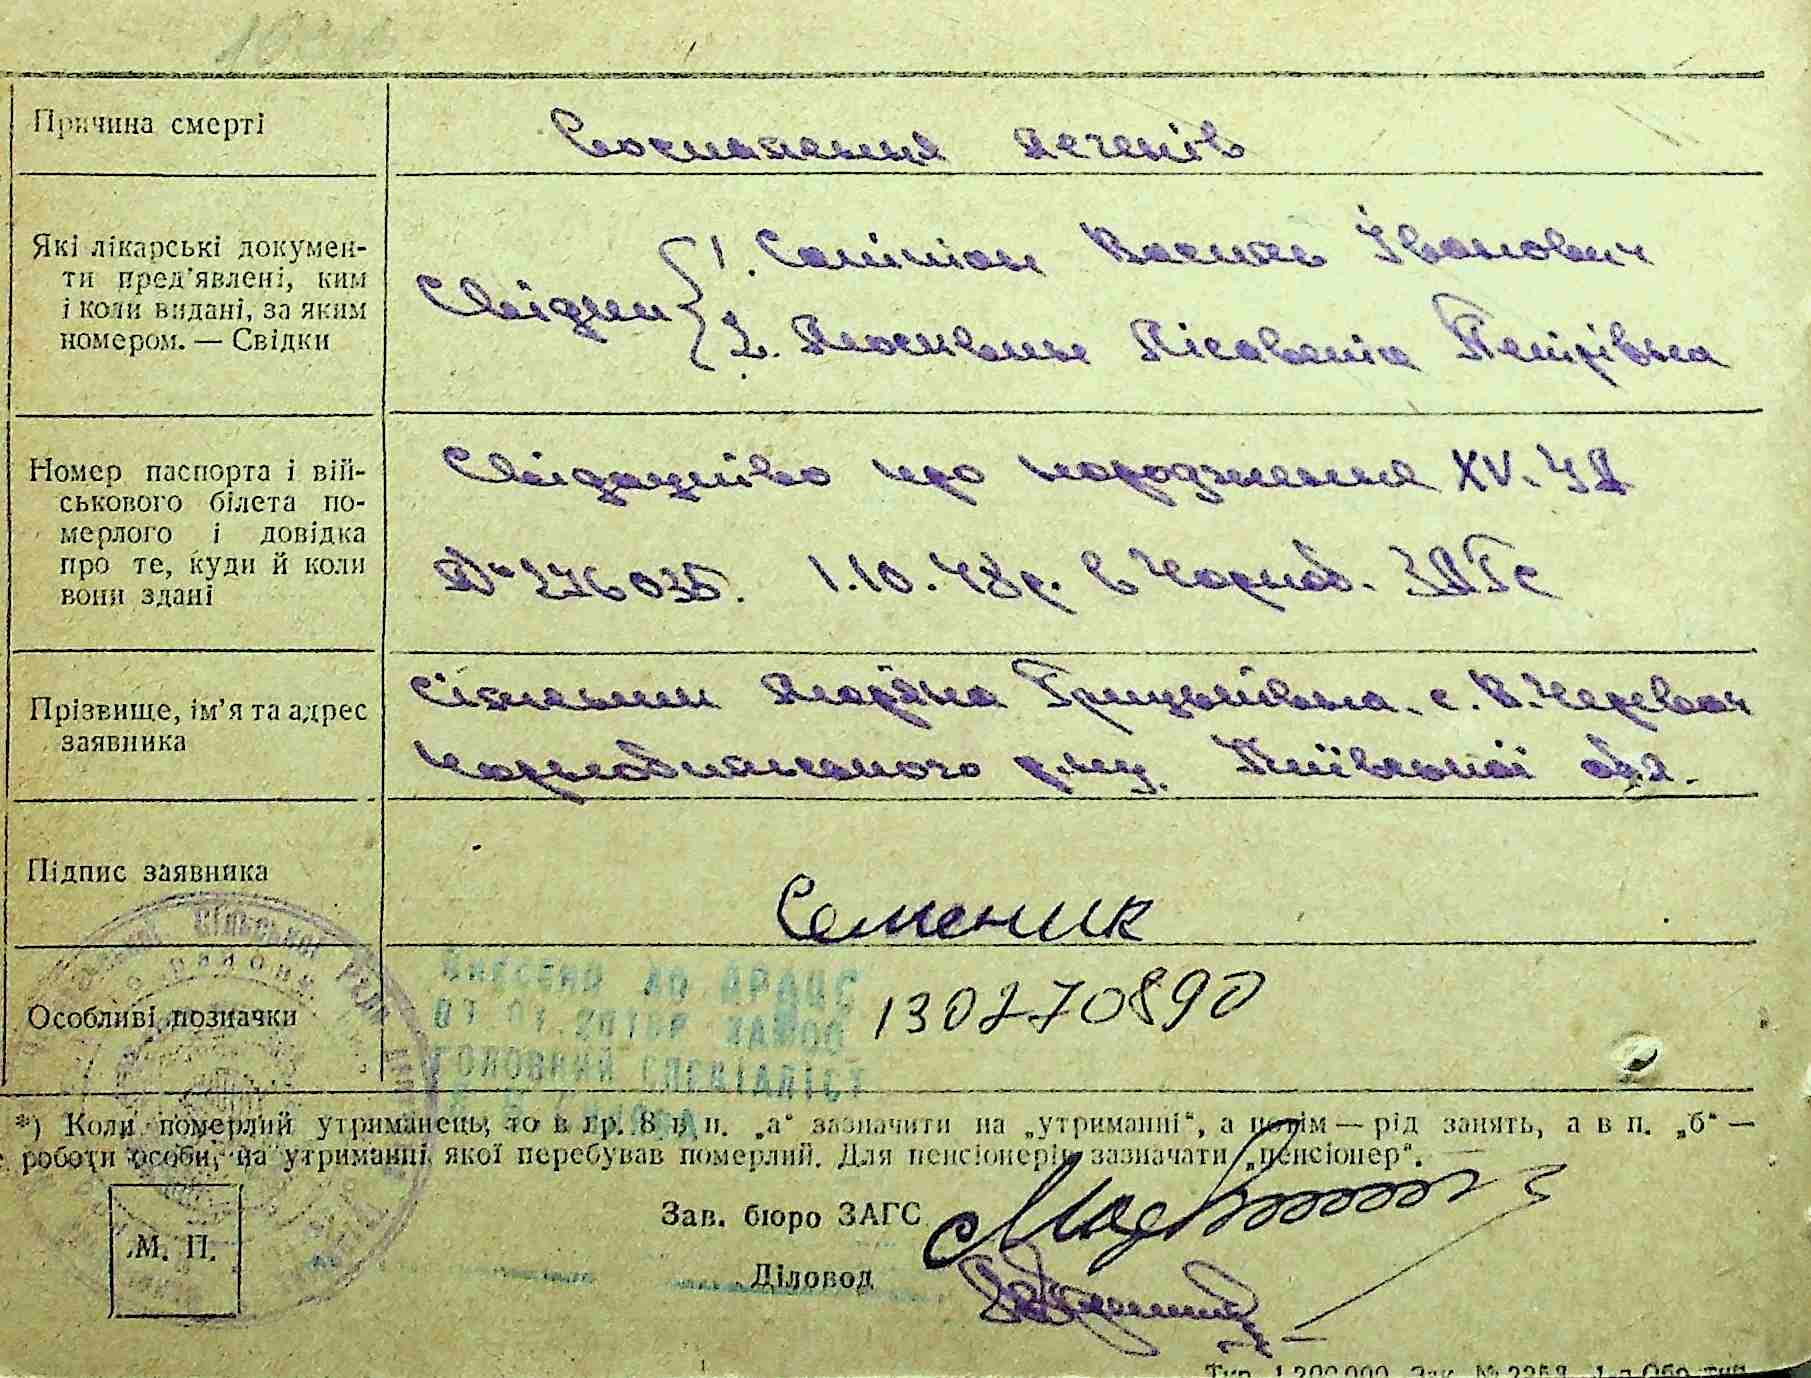 Причина смерті
Воспаления легенів
Які лікарські докумен-
ти пред'явлені, ким
і коли видані, за яким
номером. — Свідки
Свідки
1. Василь Іванович
2. Петрівна
Номер паспорта і вій-
ськового білета по-
мерлого і довідка
про те, куди й коли
вони здані
Свідоцтво про народження XV-УД
№ 276035. 1.10.48р. в Чорноб. ЗАГС
Прізвище, ім'я та адрес
заявника
Григорівна. с. В. Черевач
Чорнобильського р-ну. Київської обл.
Підпис заявника
Семеник
Особливі позначки
130270890
Внесено до ДРАЦС
ГОЛОВНИЙ СПЕЦІАЛІСТ
*) Коли померлий утриманець, то в гр. 8 в п. „а“ зазначити на „утриманні“, а потім — рід занять, а в п. „б“ —
роботи особи, на утриманні якої перебував померлий. Для пенсіонерів зазначати „пенсіонер“.
М. П.
Зав. бюро ЗАГС
Діловод
Тир. 1.200.000 Зак. №